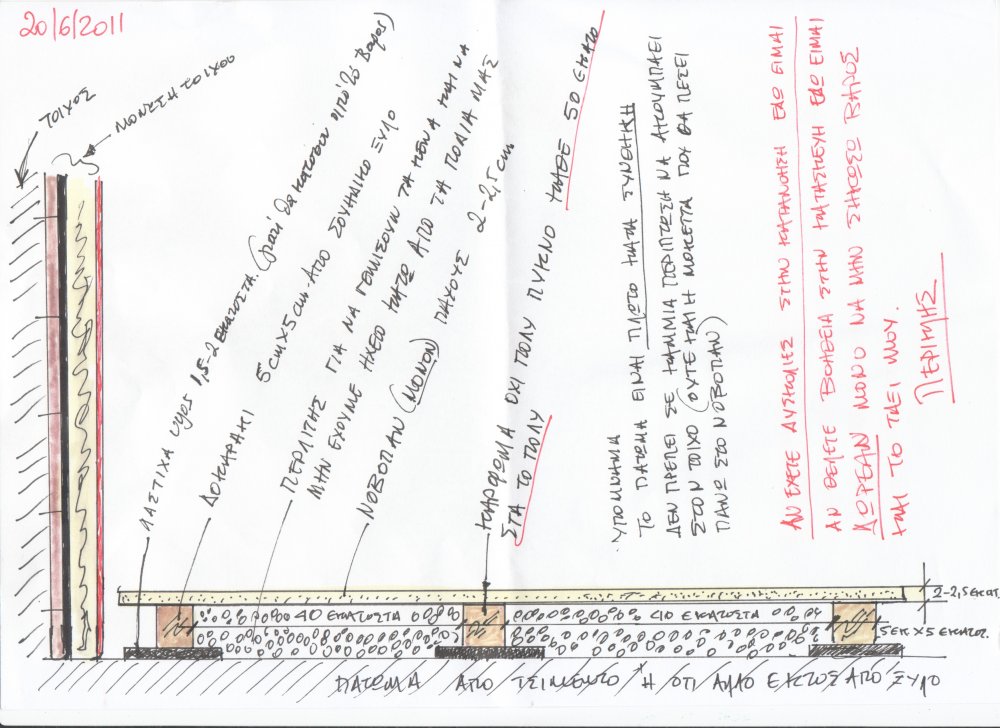 20/6/2011
ΤΟΙΧΟΣ
ΜΟΝΩΣΗ ΤΟΙΧΟΥ
ΛΑΣΤΙΧΑ υψος 1,5-2 ΕΚΑΤΟΣΤΑ. (γιατί θα κατσουν από το βαρος)
ΔΟΚΑΡΑΚΙ 5cm x 5cm ΑΠΟ ΣΟΥΗΔΙΚΟ ΞΥΛΟ
ΠΕΡΛΙΤΗΣ ΓΙΑ ΝΑ ΓΕΜΙΣΟΥΝ ΤΑ ΚΕΝΑ ΚΑΙ ΝΑ
ΜΗΝ ΕΧΟΥΜΕ ΗΧΕΙΟ ΚΑΤΩ ΑΠΟ ΤΑ ΠΟΔΙΑ ΜΑΣ
ΝΟΒΟΠΑΝ (ΜΟΝΟΝ) ΠΑΧΟΥΣ 2-2,5 cm
ΚΑΡΦΩΜΑ ΟΧΙ ΠΟΛΥ ΠΥΚΝΟ ΚΑΘΕ 50 ΕΚΑΤΟ
ΣΤΑ ΤΟ ΠΟΛΥ
ΥΠΟΜΝΗΜΑ
ΤΟ ΠΑΤΩΜΑ ΕΙΝΑΙ ΠΛΩΤΟ ΚΑΤΑ ΣΥΝΘΗΚΗ
ΔΕΝ ΠΡΕΠΕΙ ΣΕ ΚΑΜΜΙΑ ΠΕΡΙΠΤΩΣΗ ΝΑ ΑΚΟΥΜΠΑΕΙ
ΣΤΟΝ ΤΟΙΧΟ (ΟΥΤΕ ΚΑΙ Η ΜΟΚΕΤΤΑ ΠΟΥ ΘΑ ΠΕΣΕΙ
ΠΑΝΩ ΣΤΟ ΝΟΒΟΠΑΝ)
ΑΝ ΕΧΕΤΕ ΔΥΣΚΟΛΙΕΣ ΣΤΗΝ ΚΑΤΑΝΟΗΣΗ ΕΔΩ ΕΙΜΑΙ
ΑΝ ΘΕΛΕΤΕ ΒΟΗΘΕΙΑ ΣΤΗΝ ΚΑΤΑΣΚΕΥΗ ΕΔΩ ΕΙΜΑΙ
ΔΩΡΕΑΝ ΜΟΝΟ ΝΑ ΜΗΝ ΣΗΚΩΣΩ ΒΑΡΟΣ
ΚΑΙ ΤΟ ΤΑΞΙ ΜΟΥ.
ΠΕΡΙΚΛΗΣ
40 ΕΚΑΤΟΣΤΑ
40 ΕΚΑΤΟΣΤΑ
2-2,5 ΕΚΑΤ.
5 ΕΚ. X 5 ΕΚΑΤΟΣ.
ΠΑΤΩΜΑ ΑΠΟ ΤΣΙΜΕΝΤΟ Η ΟΤΙ ΑΛΛΟ ΕΚΤΟΣ ΑΠΟ ΞΥΛΟ